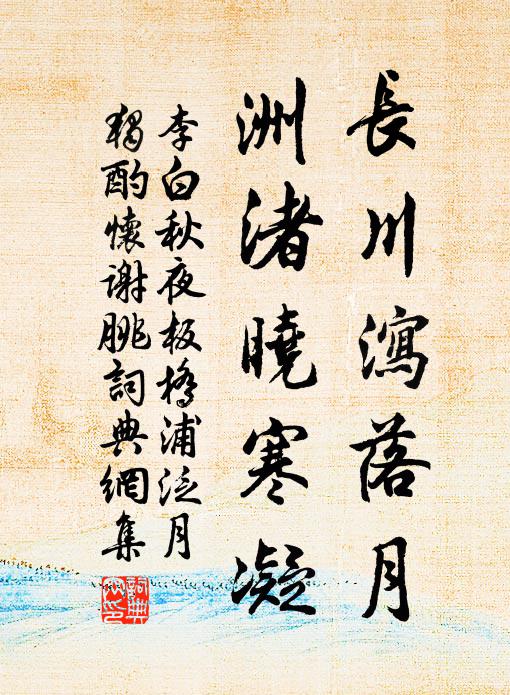 長川瀉落月
洲渚曉寒凝
李白秋夜板橋浦泛月
獨酌懷謝朓詞典網集